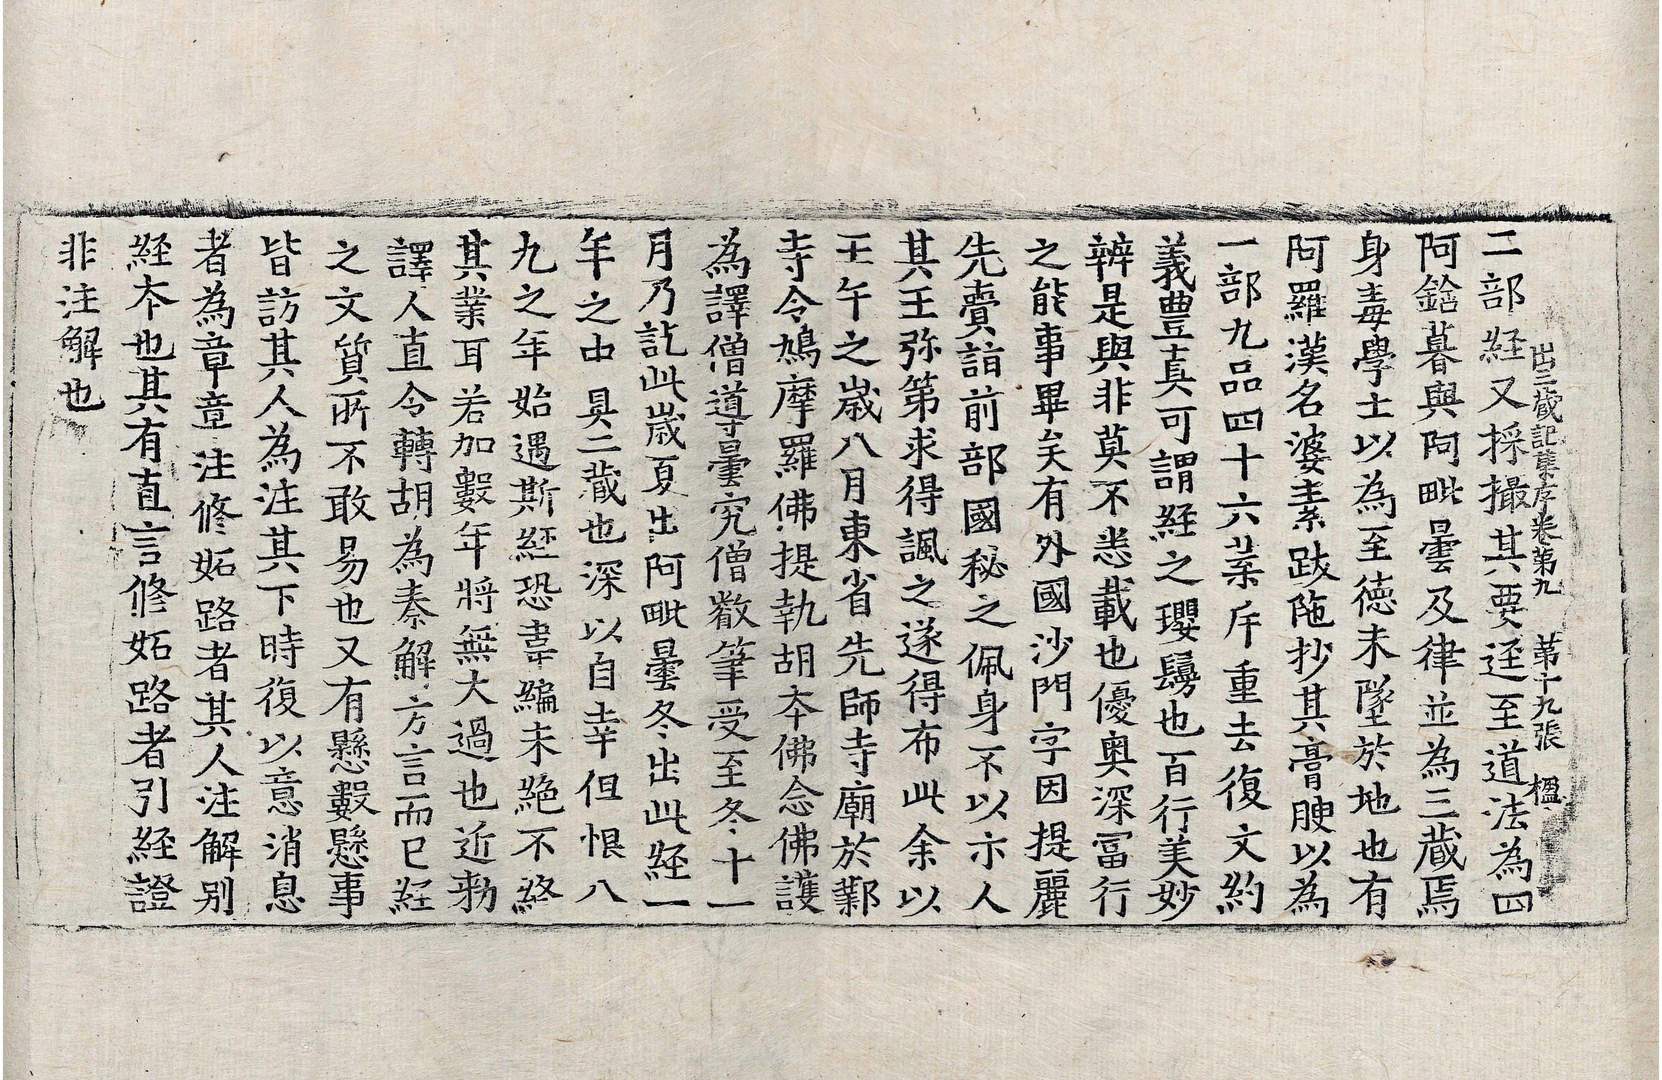 出三藏記集序卷第九 第十九張 楹
二部経又採撮其要逕至道法為四
阿鋡暮與阿毗曇及律並為三藏焉
身毒學士以為至德未墜於地也有
阿羅漢名婆素跋陁抄其膏腴以為
一部九品四十六葉斥重去復文約
義豊真可謂経之瓔鬘也百行美妙
辯是與非莫不悉載也優奥深冨行
之能事畢矣有外國沙門字因提麗
先賷詣前部國秘之佩身不以示人
其王弥第求得諷之遂得布此余以
壬午之歳八月東省先師寺廟於鄴
寺令鳩摩羅佛提執胡夲佛念佛護
為譯僧導曇究僧叡筆受至冬十一
月乃訖此歳夏出阿毗曇冬出此経一
年之中具二藏也深以自幸但恨八
九之年始遇斯経恐韋編未絶不終
其業耳若加數年將無大過也近勑
譯人直令轉胡為秦解方言而已経
之文質所不敢易也又有懸數懸事
皆訪其人為注其下時復以意消息
者為章章注修妬路者其人注解别
経夲也其有直言修妬路者引経證
非注解也